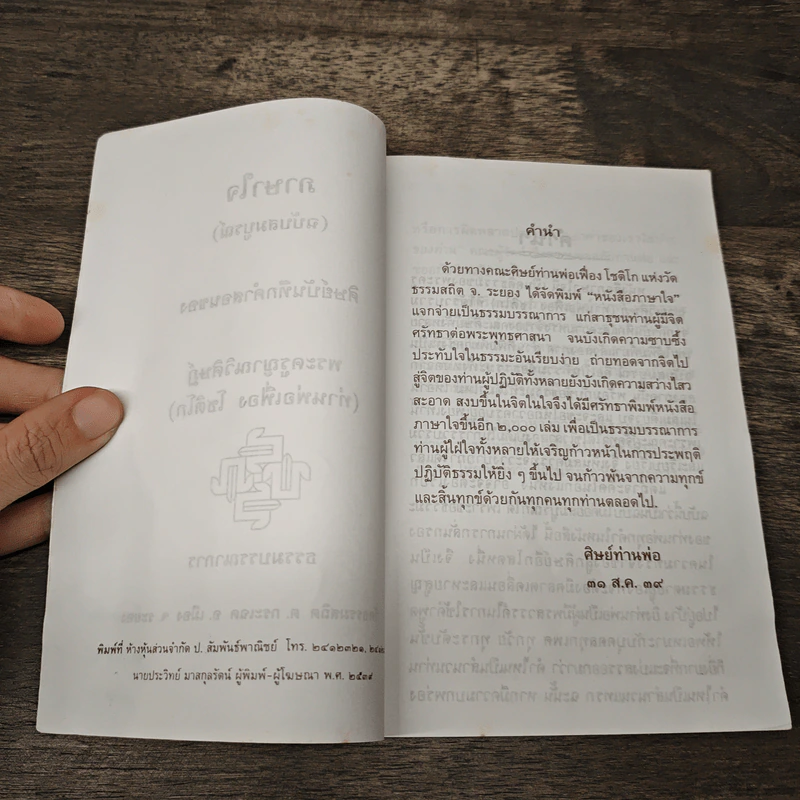 พิมพ์ที่ ห้างหุ้นส่วนจำกัด ป. สัมพันธ์พาณิชย์ โทร. ๒๔๑๒๓๒๑,
นายประวิทย์ มาสกุลรัตน์ ผู้พิมพ์-ผู้โฆษณา พ.ศ. ๒๕๓๙
คำนำ
ด้วยทางคณะศิษย์ท่านพ่อเฟื่อง โชติโก แห่งวัด
ธรรมสถิต จ. ระยอง ได้จัดพิมพ์ "หนังสือภาษาใจ"
แจกจ่ายเป็นธรรมบรรณาการ แก่สาธุชนท่านผู้มีจิต
ศรัทธาต่อพระพุทธศาสนา จนบังเกิดความซาบซึ้ง
ประทับใจในธรรมะอันเรียบง่าย ถ่ายทอดจากจิตไป
สู่จิตของท่านผู้ปฏิบัติทั้งหลายยังบังเกิดความสว่างไสว
สะอาด สงบขึ้นในจิตในใจจึงได้มีศรัทธาพิมพ์หนังสือ
ภาษาใจขึ้นอีก ๒,๐๐๐ เล่ม เพื่อเป็นธรรมบรรณาการ
ท่านผู้ใฝ่ใจทั้งหลายให้เจริญก้าวหน้าในการประพฤติ
ปฏิบัติธรรมให้ยิ่ง ๆ ขึ้นไป จนก้าวพ้นจากความทุกข์
และสิ้นทุกข์ด้วยกันทุกคนทุกท่านตลอดไป.
ศิษย์ท่านพ่อ
๓๑ ส.ค. ๓๙